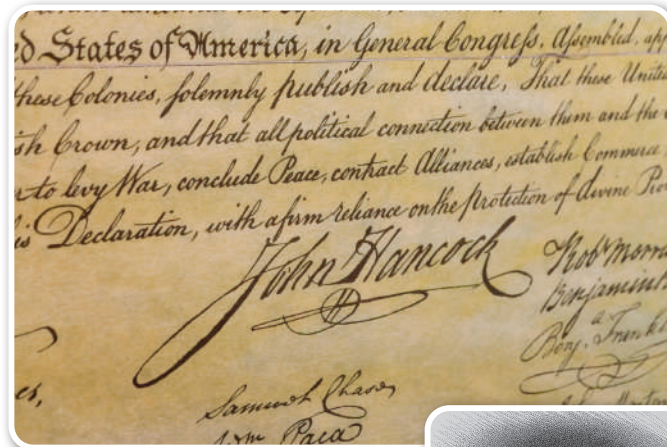 ed States of America, in General Congress, Assembled, app
these Colonies, solemnly publish and declare, That these Unite
sh Crown, and that all political connection between them and the
to levy War, conclude Peace, contract Alliances, establish Commerce,
is Declaration, with a firm reliance on the Protection of divine Pro
John Hancock
Robt Morri
Benjamin
Benj. Frankl
es,
Samuel Chase
Wm Paca